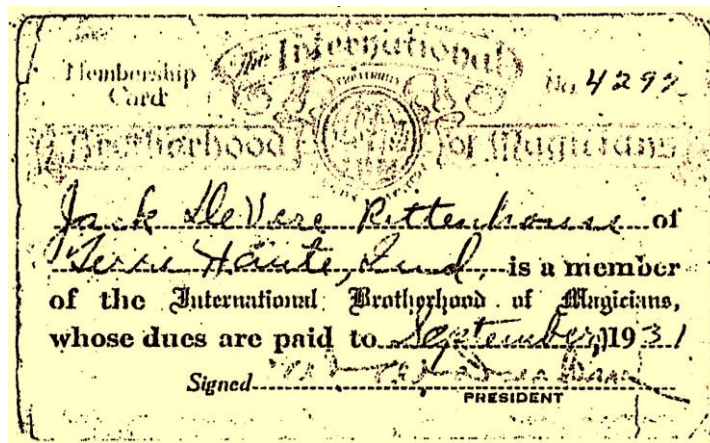 Membership Card
The International
No. 4297
Brotherhood of Magicians
Jack DeVere Rittenhouse of
Terre Haute, Ind, is a member
of the International Brotherhood of Magicians,
whose dues are paid to September, 1931
Signed
PRESIDENT